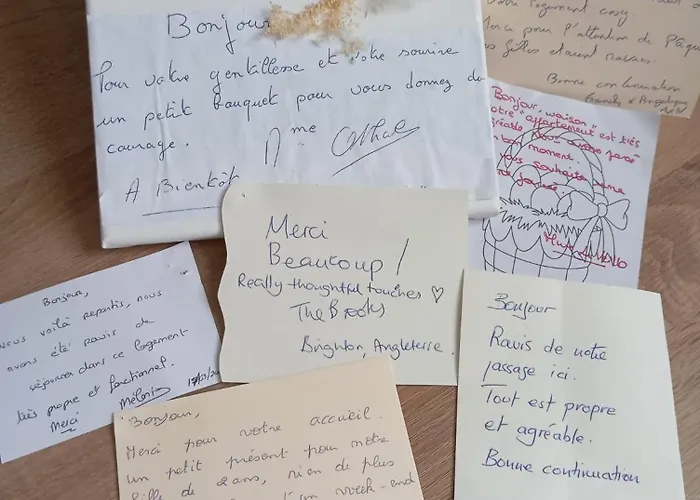 Bonjour
Pour votre gentillesse et votre sourire
un petit bouquet pour vous donnez du
courage.
A Bientôt
Mme
votre logement cosy.
Merci pour l'attention de Pâq
filles étaient ravies.
Bonne continuation
Bonjour,
votre "appartement" est très
agréable. Nous avons passé
un bon moment.
vous souhaite une
Bonjour,
Nous voilà repartis, nous
avons été ravis de
séjourner dans ce logement
très propre et fonctionnel.
Merci
Mélanie
Merci
Beaucoup!
Really thoughtful touches ♡
The Brooks
Brighton, Angleterre.
Bonjour
Ravis de notre
passage ici.
Tout est propre
et agréable.
Bonne continuation
Bonjour,
Merci pour votre accueil.
un petit présent pour notre
fille de 2 ans, rien de plus
week-end